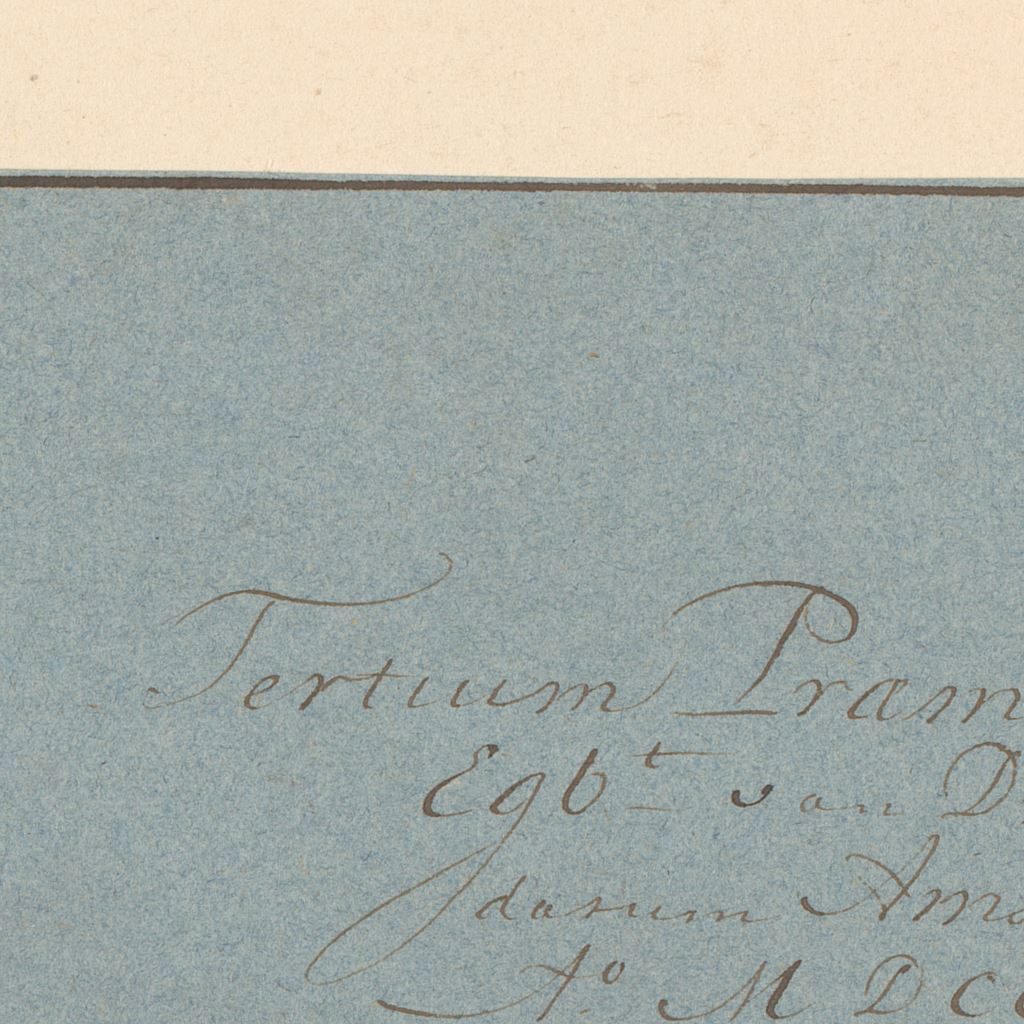 Tertium Præm
Egb^t van D
darum Ams
A^o M D C C